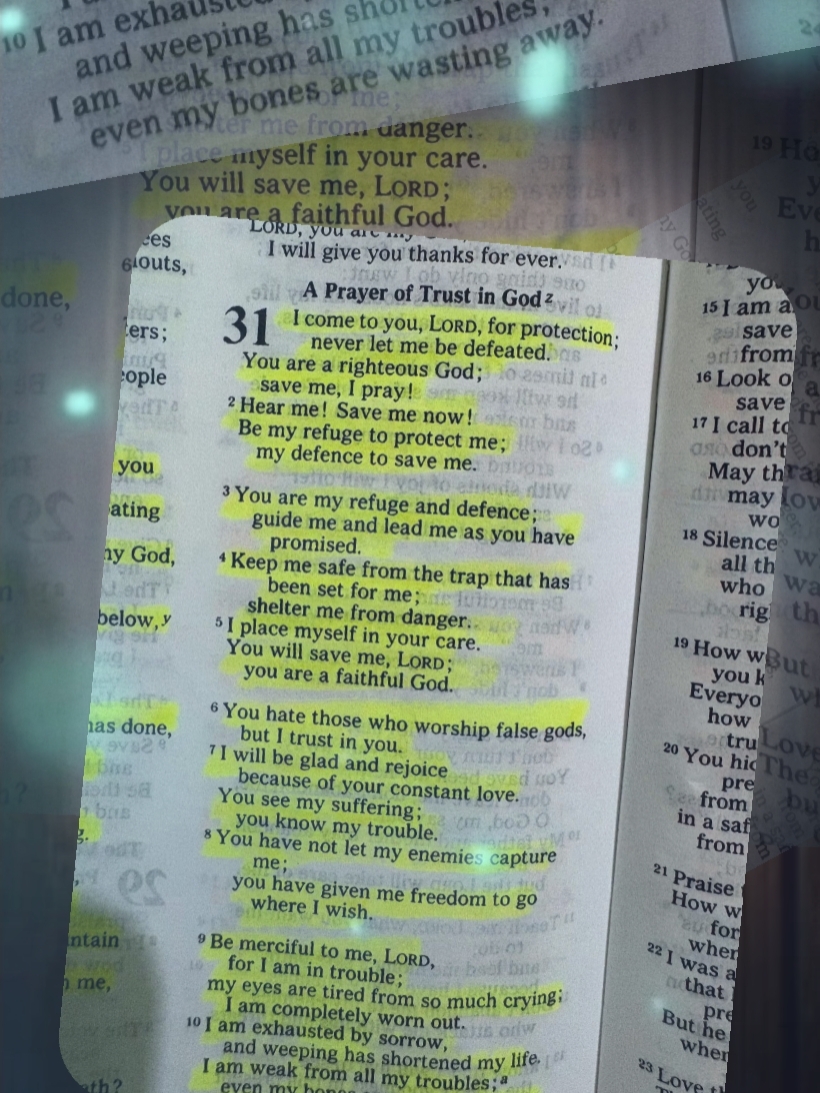 10 I am exhausted
and weeping has
I am weak from all my troubles,
even my bones are wasting away.
me;
me from danger.
I place myself in your care.
You will save me, LORD;
you are a faithful God.
LORD, you are my
I will give you thanks for ever.
A Prayer of Trust in God z
31 I come to you, LORD, for protection;
never let me be defeated.
You are a righteous God;
save me, I pray!
2 Hear me! Save me now!
Be my refuge to protect me;
my defence to save me.
3 You are my refuge and defence;
guide me and lead me as you have
promised.
4 Keep me safe from the trap that has
been set for me;
shelter me from danger.
5 I place myself in your care.
You will save me, LORD;
you are a faithful God.
6 You hate those who worship false gods,
but I trust in you.
7 I will be glad and rejoice
because of your constant love.
You see my suffering;
you know my trouble.
8 You have not let my enemies capture
me;
you have given me freedom to go
where I wish.
9 Be merciful to me, LORD,
for I am in trouble;
my eyes are tired from so much crying;
I am completely worn out.
10 I am exhausted by sorrow,
and weeping has shortened my life.
I am weak from all my troubles; a
even my
done,
you
God,
below, y
has done,
me,
15 I am a
save
from
16 Look
save
17 I call to
don't
May
may
18 Silence
all
who
19 How
you
how
20 You
from
in a
from
21 Praise
How
for
22 I was a
that
But he
23 Love